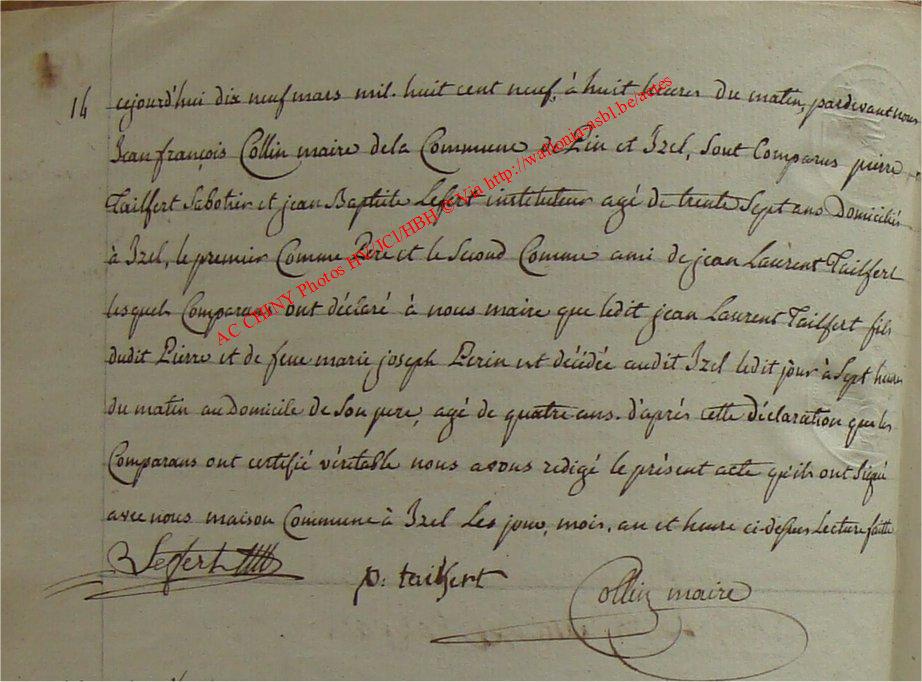 14
cejourd'hui dix neuf mars mil. huit cent neuf, à huit heures du matin, pardevant nous
Jean françois Collin maire dela Commune de Pin et Izel, sont Comparus pierre
Tailfert Sabotier et jean Baptiste Lefert instituteur agé de trente Sept ans Domiciliés
à Izel, le premier Comme Pere et le Second Comme ami de jean Laurent Tailfert
lesquels Comparans ont déclaré à nous maire que ledit jean Laurent Tailfert fils
dudit Pierre et de feue marie joseph Perin est décédée audit Izel ledit jour à Sept heures
du matin au Domicile de Son pere, agé de quatre ans. d'après cette déclaration que les
Comparans ont certifié véritable nous avons redigé le présent acte qu'ils ont Signé
avec nous maison Commune à Izel Les jour, mois, an et heure ci-dessus Lecture faitte
Lefert
p: tailfert
Collin maire
AC CHINY Photos HV/JCl/HBH © Via http://wallonia-asbl.be/actes